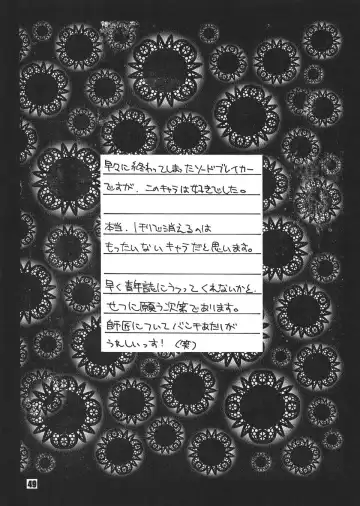 早々に終わってしまったソードブレイカー
ですが、このキャラは好きでした。
本当、1刊で消えるのは
もったいないキャラだと思います。
早く青年誌にうつってくれないかと、
せつに願う次第であります。
師匠についてバンチあたりが
うれしいっす! (笑)
49